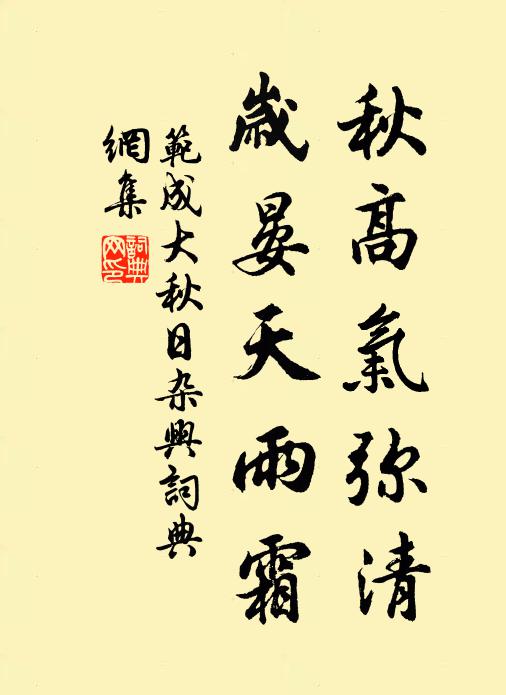 秋高氣弥清
歲晏天雨霜
範成大秋日杂興詞典
網集
詞典
网印